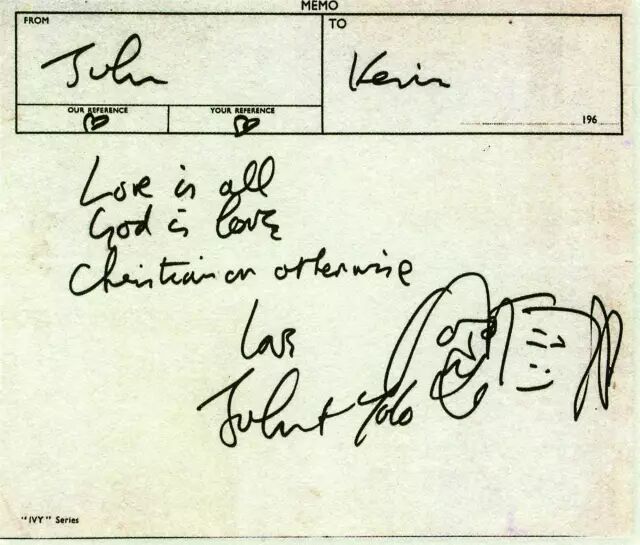 MEMO
FROM
TO
John
Kevin
OUR REFERENCE
YOUR REFERENCE
196
Love is all
God is love
Christian or otherwise
Love
John + Yoko
"IVY" Series